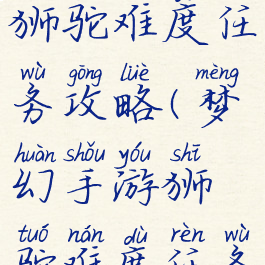 狮驼难度任
wù gōng lüè mèng
务攻略(梦
huàn shǒu yóu shī
幻手游狮
tuó nán dù rèn wù
驼难度任务